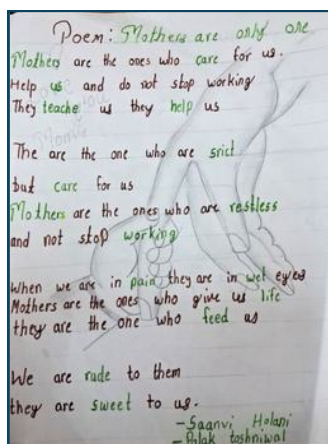 Poem: Mothers are only one
Mothers are the ones who care for us.
Help us and do not stop working
They teache us they help us
The are the one who are srict
but care for us
Mothers are the ones who are restless
and not stop working
When we are in pain they are in wet eyes
Mothers are the ones who give us life
they are the one who feed us
We are rude to them
they are sweet to us.
-Saanvi Holani
-Palak Toshniwal